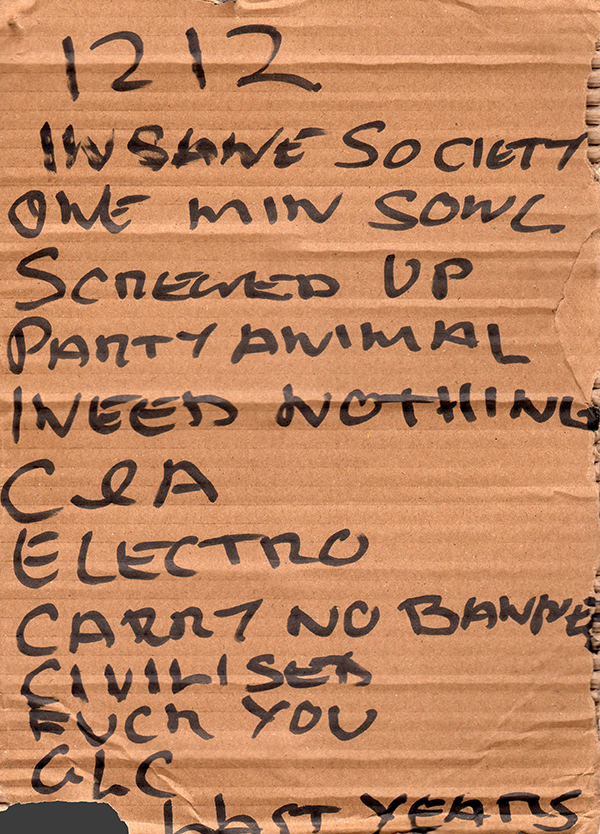 1212
INSANE SOCIETY
ONE MIN SONG
SCREWED UP
PARTY ANIMAL
I NEED NOTHING
CIA
ELECTRO
CARRY NO BANNE
CIVILISED
FUCK YOU
GLC
LAST YEARS